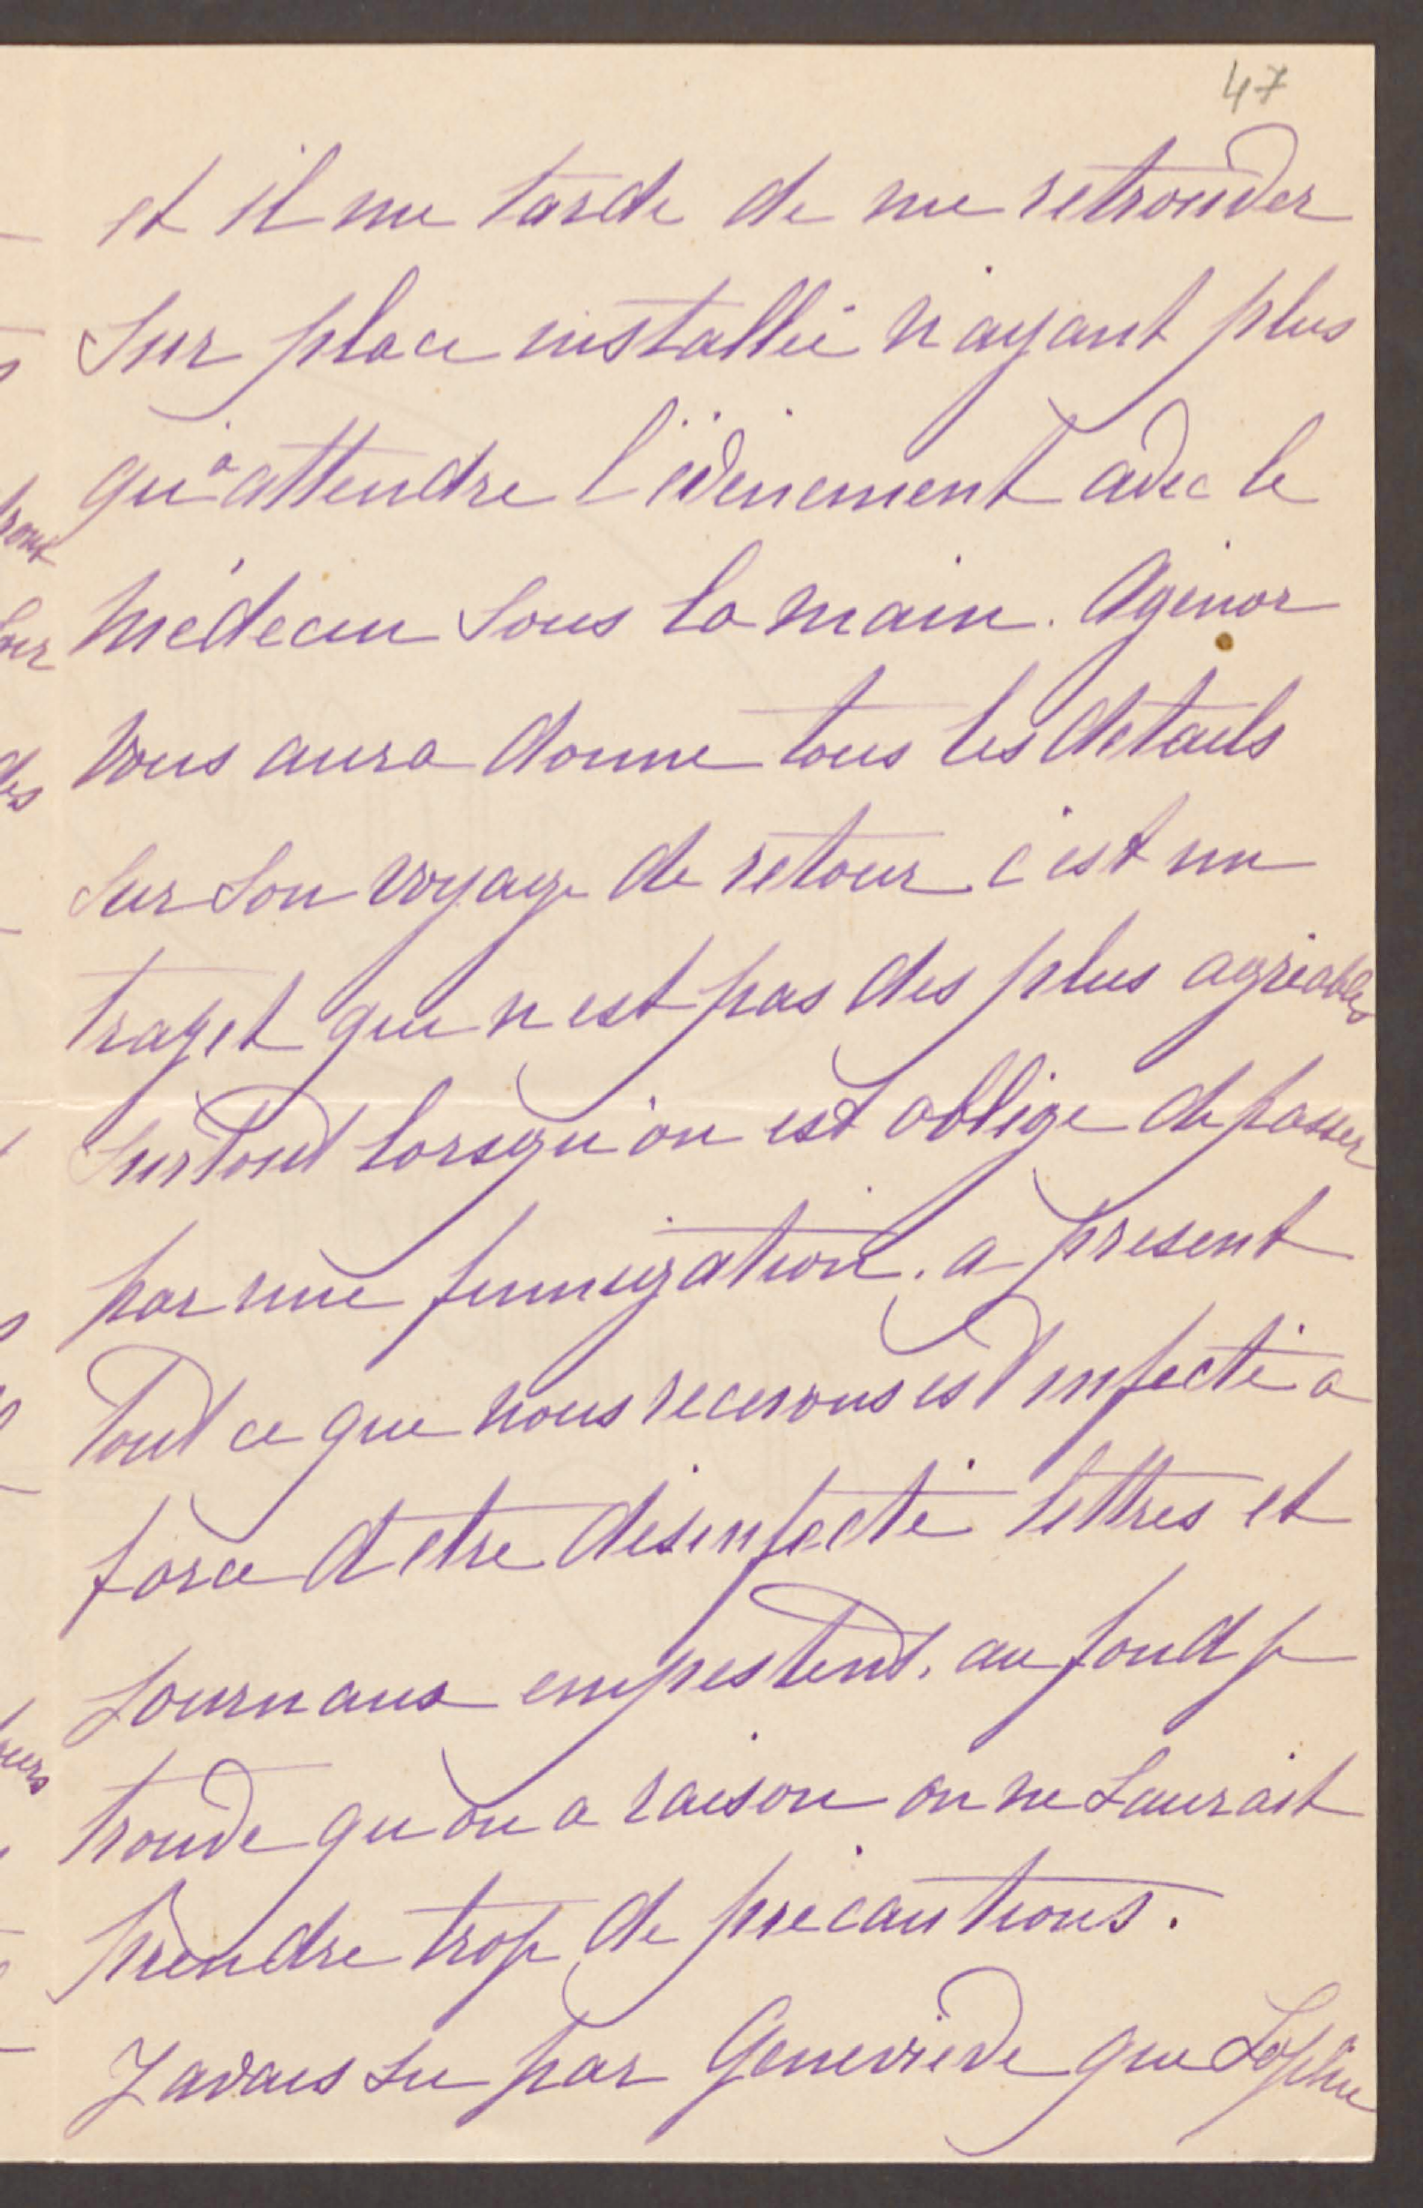 47
et il me tarde de me retrouver
sur place installée n'ayant plus
qu'à attendre l'évènement avec le
médecin sous la main. Agénor
vous aura donne tous les details
sur son voyage de retour c'est un
trajet qui n'est pas des plus agréables
surtout lorsqu'on est oblige de passer
par une fumigation. a present
tout ce que nous recevons est infecté a
force d'etre désinfecté lettres et
journaux empestent. au fond je
trouve qu'on a raison on ne saurait
prendre trop de précautions.
J'avais su par Geneviève que Sophie